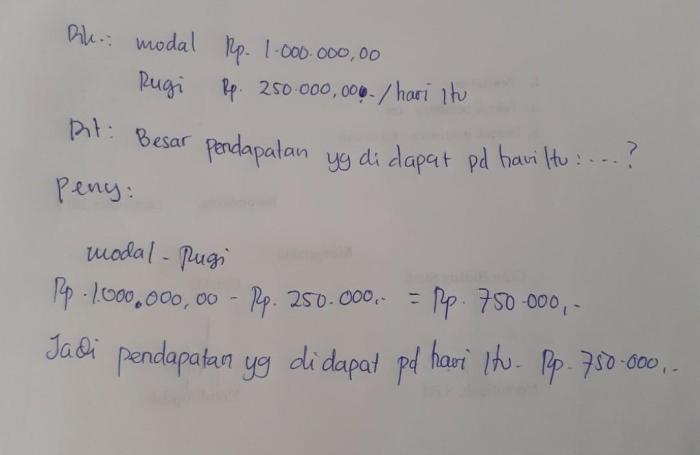 Dik.: modal Rp. 1.000.000,00
Rugi Rp. 250.000,00.-/hari Itu
Dit: Besar pendapatan yg di dapat pd hari Itu : ...?
Peny:
modal - Rugi
Rp. 1.000.000,00 - Rp. 250.000,- = Rp. 750.000,-
Jadi pendapatan yg didapat pd hari Itu. Rp. 750.000,-